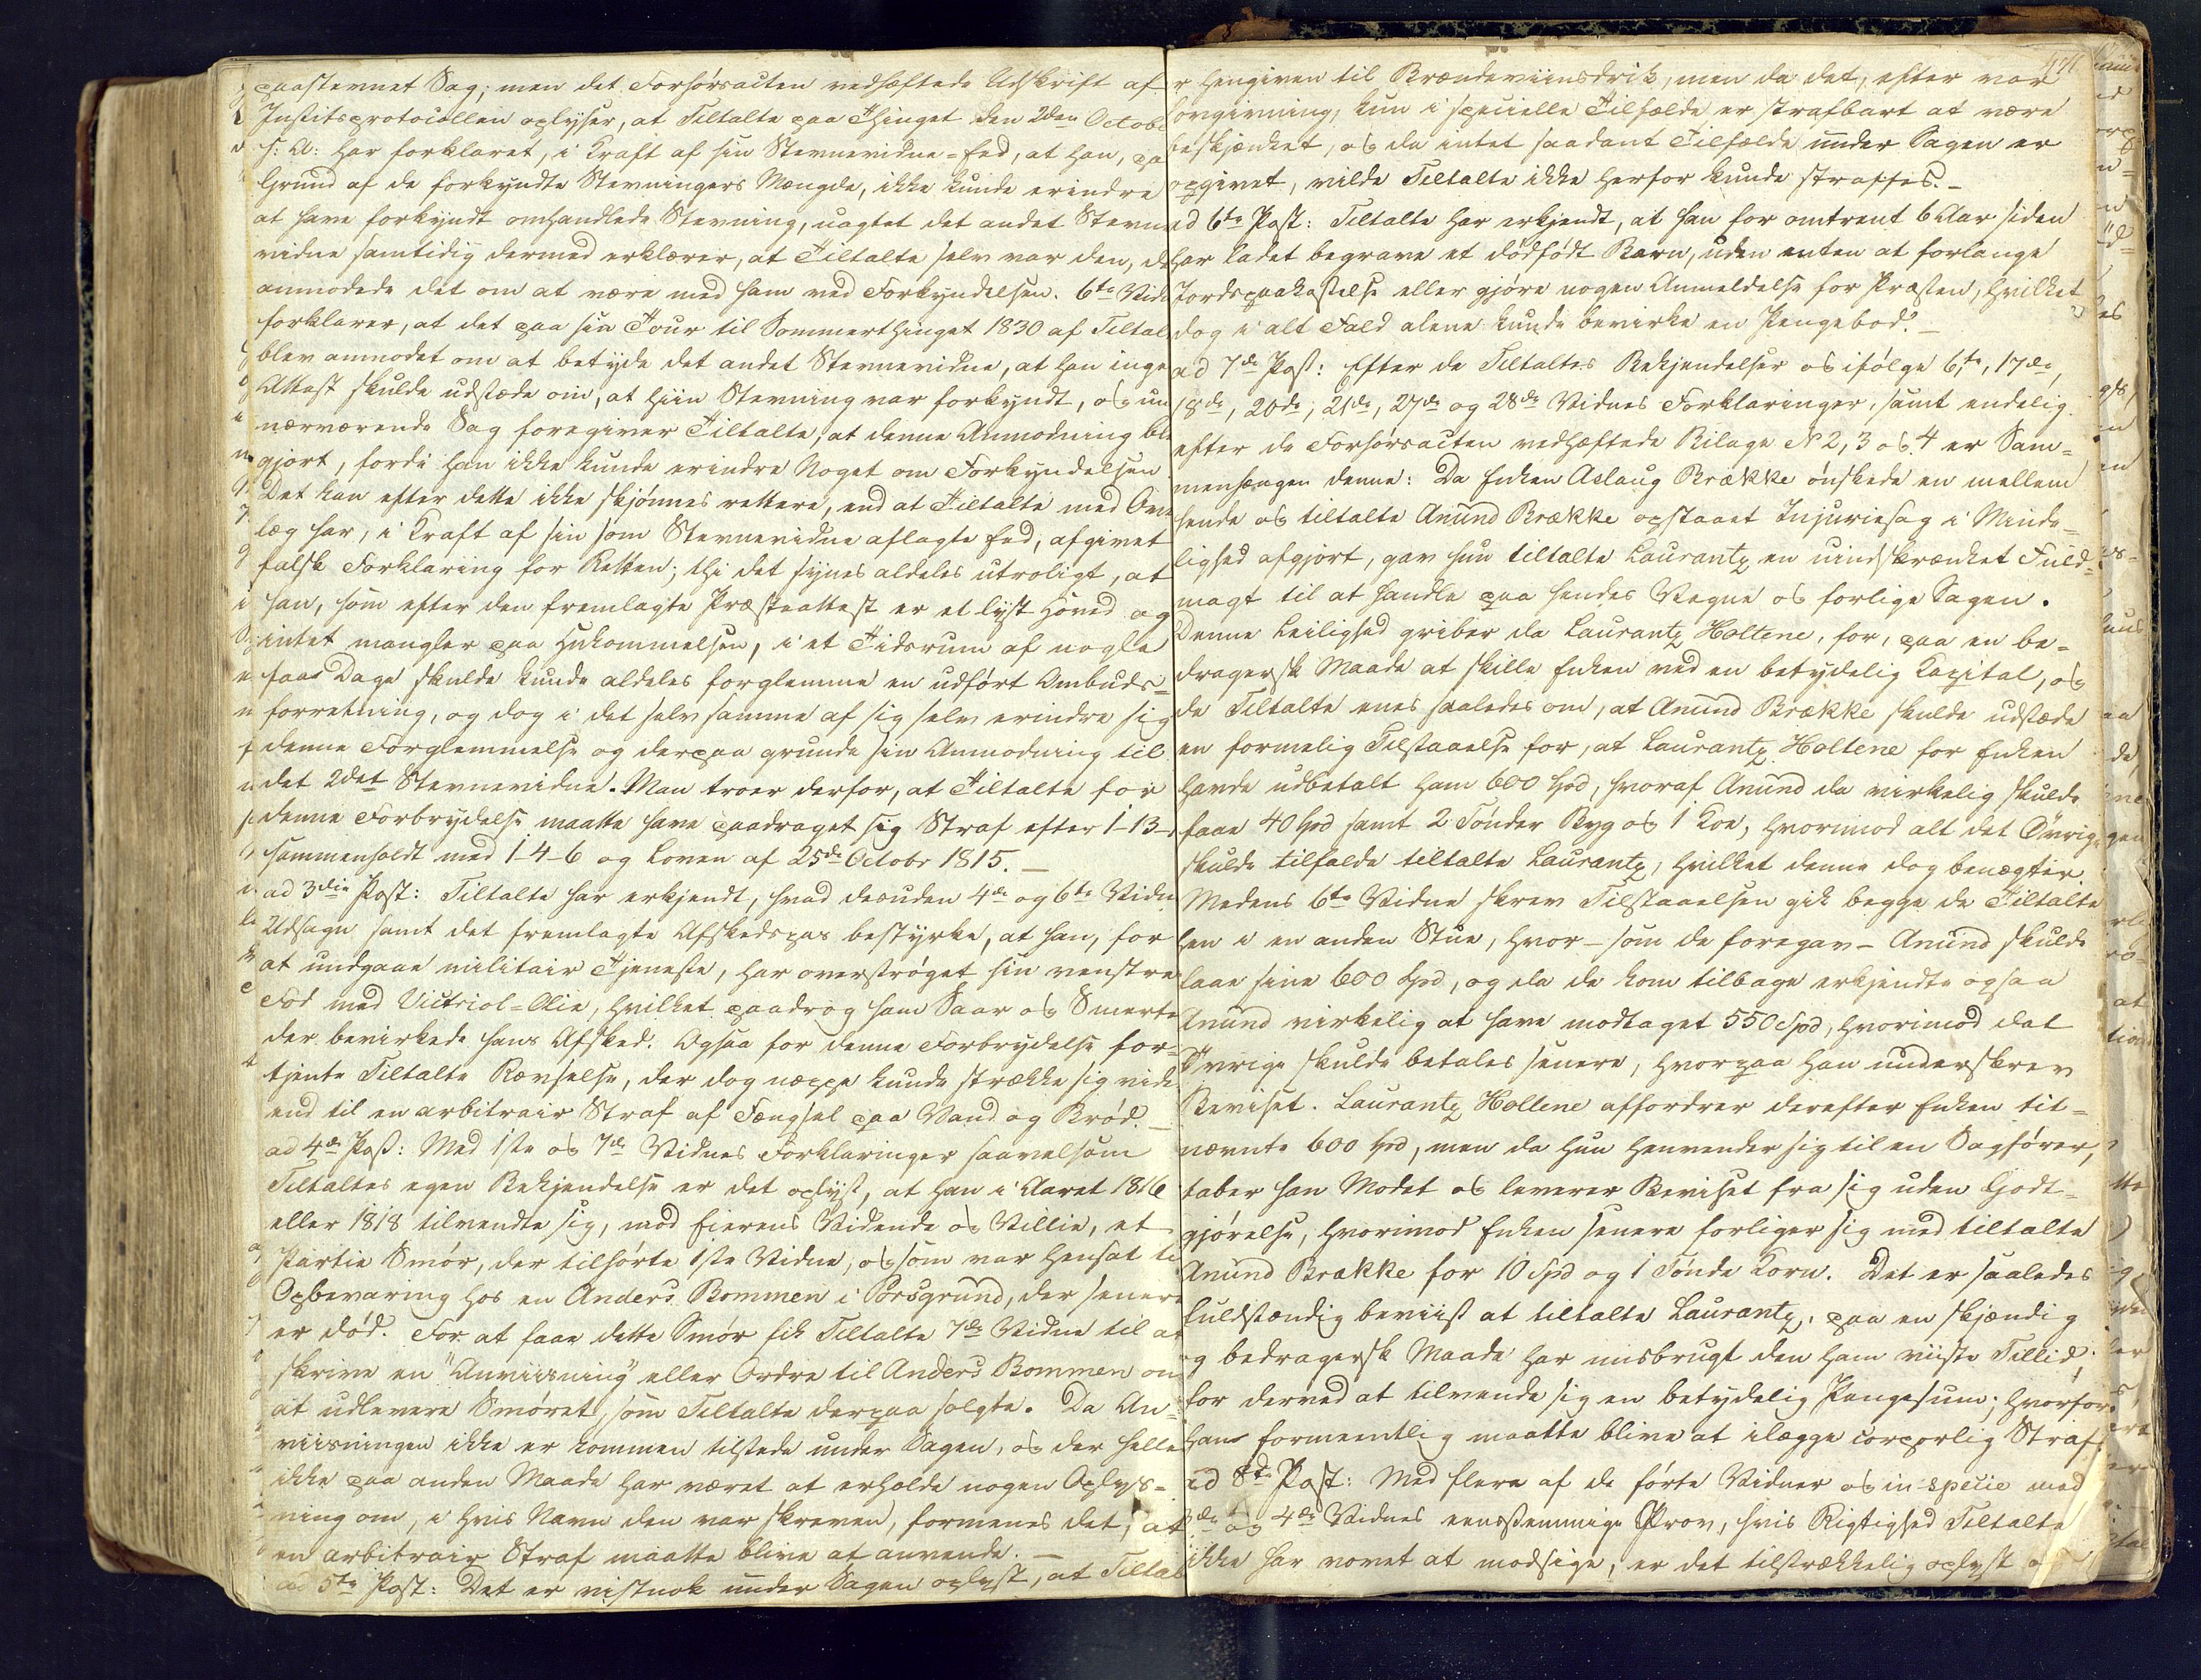 paastevnet Sag; men det Forhørsacten vedhæftede Udskrift af
Justitsprotocollen oplyser, at Tiltalte paa Thinget den 2den Octobr
s: A: har forklaret, i Kraft af sin Stevnevidne-Eed, at han, paa
Grund af de forkyndte Stevningers Mængde, ikke kunde erindre
at have forkyndt omhandlede Stevning, uagtet det andet Stevne
vidne samtidig dermed erklærer, at Tiltalte selv var den, der
anmodede det om at være med ham ved Forkyndelsen. 6te Vidne
forklarer, at det paa sin Tour til Sommerthinget 1830 af Tiltalte
blev anmodet om at betyde det andet Stevnevidne, at han ingen
Attest skulde udstæde om, at hiin Stevning var forkyndt, og under
nærværende Sag foregiver Tiltalte, at denne Anmodning blev
gjort, fordi han ikke kunde erindre Noget om Forkyndelsen
Det kan efter dette ikke skjønnes rettere, end at Tiltalte med Over
læg har, i Kraft af sin som Stevnevidne aflagte Eed, afgivet
falsk Forklaring for Retten; thi det synes aldeles utroligt, at
han, som efter den fremlagte Præsteattest er et lyst Hoved og
intet mangler paa Hukommelsen, i et Tidsrum af nogle
faae Dage skulde kunde aldeles forglemme en udført Ombuds-
forretning, og dog i det selv samme af sig selv erindre sig
denne Forglemmelse og derpaa grunde sin Anmodning til
det 2det Stevnevidne. Man troer derfor, at Tiltalte for
denne Forbrydelse maatte have paadraget sig Straf efter 1-13-
sammenholdt med 1-4-6 og Loven af 25de Octobr 1815.
ad 3die Post: Tiltalte har erkjendt, hvad desuden 4de og 6te Vidnes
Udsagn samt det fremlagte Afskedspas bestyrke, at han, for
at undgaae militair Tjeneste, har overstrøget sin venstre
Fod med Victriol-Olie, hvilket paadrog ham Saar og Smerte
der bevirkede hans Afsked. Ogsaa for denne Forbrydelse for-
tjente Tiltalte Revselse, der dog neppe kunde strække sig vide
end til en arbitrair Straf af Fængsel paa Vand og Brød. —
ad 4de Post: Med 1ste og 7de Vidnes Forklaringer saavelsom
Tiltaltes egen Bekjendelse er det oplyst, at han i Aaret 1816
eller 1818 tilvendte sig, mod Eierens Vidende og Villie, et
Partie Smør, der tilhørte 1ste Vidne, og som var hensat til
Opbevaring hos en Anders Bommen i Porsgrund, der senere
er død. For at faae dette Smør fik Tiltalte 7de Vidne til at
skrive en "Anviisning" eller Ordre til Anders Bommen om
at udlevere Smøret, som Tiltalte derpaa solgte. Da An-
viisningen ikke er kommen tilstede under Sagen, og der heller
ikke paa anden Maade har været at erholde nogen Oplys-
ning om, i hvis Navn den var skreven, formenes det, at
en arbitrair Straf maatte blive at anvende. —
ad 5te Post: Det er vistnok under Sagen oplyst, at Tiltalte
471
er hengiven til Brændeviinsdrik, men da det, efter vor
Lovgivning, kun i specielle Tilfælde er strafbart at være
beskjænket, og da intet saadant Tilfælde under Sagen er
opgivet, vilde Tiltalte ikke herfor kunde straffes. —
ad 6te Post: Tiltalte har erkjendt, at han for omtrent 6 Aar siden
har ladet begrave et dødfødt Barn, uden enten at forlange
Jordspaakastelse eller gjøre nogen Anmeldelse for Præsten, hvilket
dog i alt Fald alene kunde bevirke en Pengebod. —
ad 7de Post: Efter de Tiltaltes Bekjendelser og ifølge 6te, 17de,
18de, 20de, 21de, 27de og 28de Vidnes Forklaringer, samt endelig
efter de Forhørsacten vedhæftede Bilage No 2, 3 og 4 er Sam-
menhængen denne: Da Enken Aslaug Brække ønskede en mellem
hende og tiltalte Anund Brække opstaaet Injuriesag i Minde-
lighed afgjort, gav hun tiltalte Laurantz en uindskrænket Fuld-
magt til at handle paa hendes Vegne og forlige Sagen.
Denne Leilighed griber da Laurantz Holtene, for, paa en be-
dragersk Maade at skille Enken ved en betydelig Kapital, og
de Tiltalte enes saaledes om, at Anund Brække skulde udstæde
en formelig Tilstaaelse for, at Laurantz Holtene for Enken
havde udbetalt ham 600 Spd, hvoraf Anund da virkelig skulde
faae 40 Spd samt 2 Tønder Byg og 1 Koe, hvorimod alt det Øvrige
skulde tilfalde tiltalte Laurantz, hvilket denne dog benægter.
Medens 6te Vidne skrev Tilstaaelsen gik begge de Tiltalte
hen i en anden Stue, hvor – som de foregav – Anund skulde
faae sine 600 Spd, og da de kom tilbage erkjendte ogsaa
Anund virkelig at have modtaget 550 Spd, hvorimod det
Øvrige skulde betales senere, hvorpaa han underskrev
Beviset. Laurantz Holtene affordrer derefter Enken tit-
nævnte 600 Spd, men da hun henvender sig til en Sagfører,
taber han Modet og leverer Beviset fra sig uden Godt-
gjørelse, hvorimod Enken senere forliger sig med tiltalte
Anund Brække for 10 Spd og 1 Tønde Korn. Det er saaledes
fuldstændig beviist at tiltalte Laurantz, paa en skjændig
og bedragersk Maade har misbrugt den ham viiste Tillid,
for derved at tilvende sig en betydelig Pengesum; hvorfor
hans formeentlig maatte blive at ilægge corporlig Straf.
ad 8de Post: Med flere af de førte Vidner og in specie med
3de og 4de Vidnes eenstemmige Prov, hvis Rigtighed Tiltalte
ikke har vovet at modsige, er det tilstrækkelig oplyst